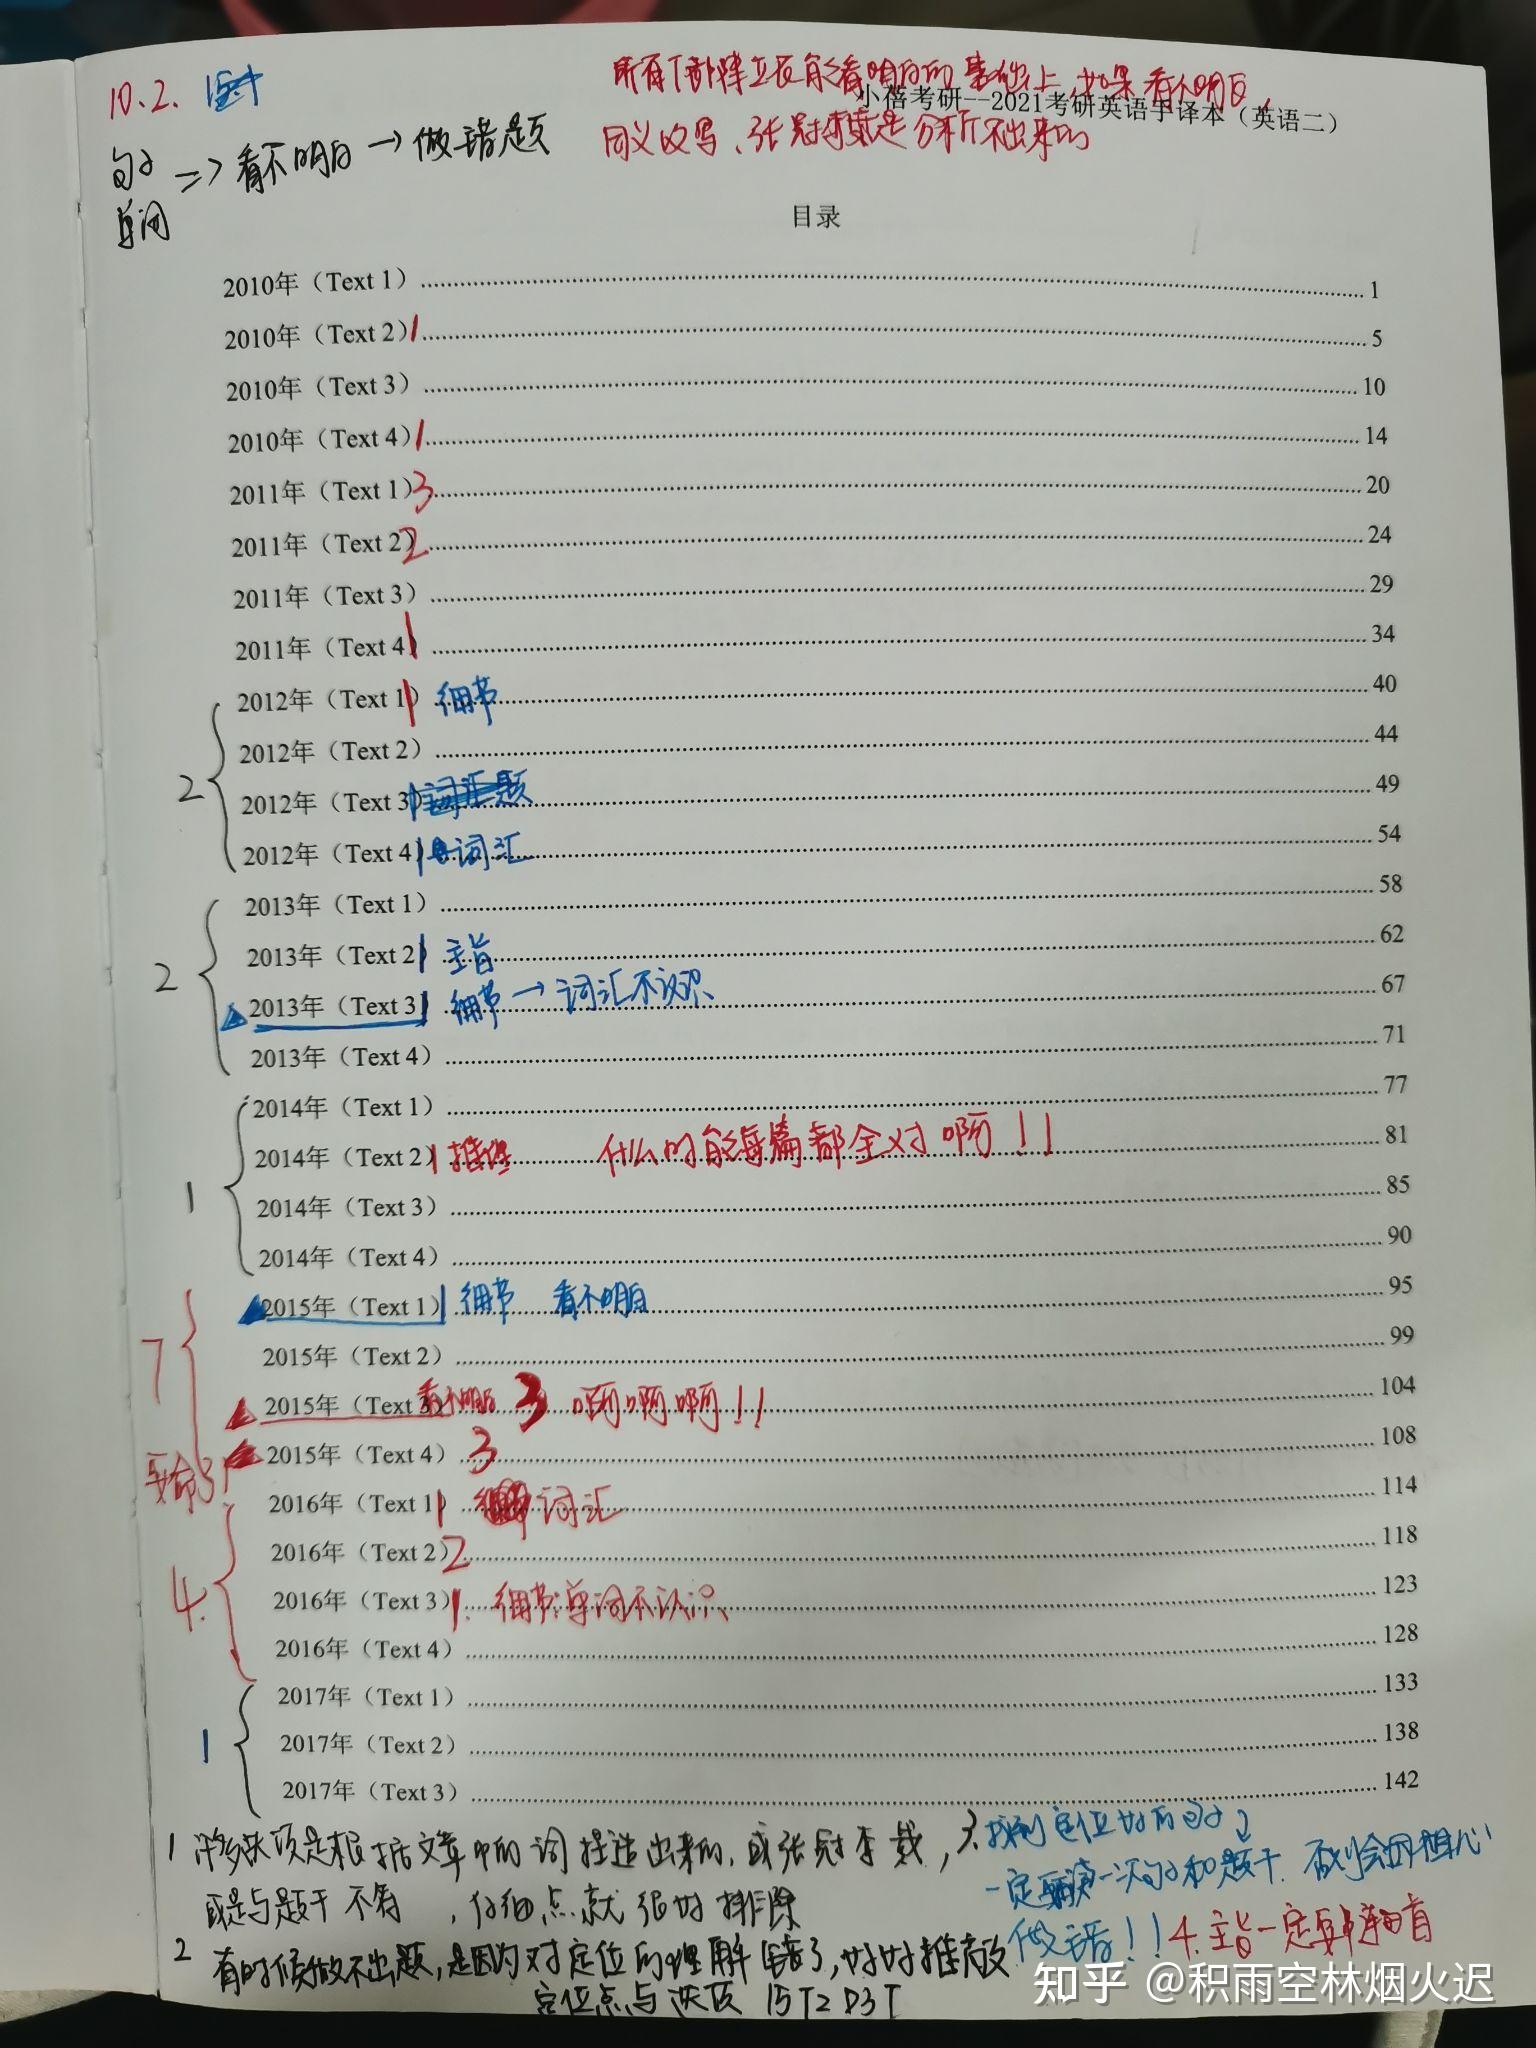 10.2.
所有问都建立在能看明白的基础上，如果看不明白，
小蓓考研--2021考研英语手译本（英语二）
同义改写、张冠李戴是分析不出来的
句子
单词
=> 看不明白 → 做错题
目录
2010年（Text 1） 1
2010年（Text 2） 1 5
2010年（Text 3） 10
2010年（Text 4） 1 14
2011年（Text 1） 3 20
2011年（Text 2） 2 24
2011年（Text 3） 29
2011年（Text 4） 1 34
2012年（Text 1） 1 细节 40
2012年（Text 2） 44
2 2012年（Text 3） 1 词汇题 49
2012年（Text 4） 1 词汇 54
2013年（Text 1） 58
2013年（Text 2） 1 主旨 62
2 2013年（Text 3） 1 细节 → 词汇不认识 67
2013年（Text 4） 71
2014年（Text 1） 77
2014年（Text 2） 1 推理 什么时能每篇都全对啊!!! 81
1 2014年（Text 3） 85
2014年（Text 4） 90
2015年（Text 1） 1 细节 看不明白 95
7 2015年（Text 2） 99
2015年（Text 3） 看不明白 3 啊啊啊!!! 104
要命了 2015年（Text 4） 3 108
2016年（Text 1） 1 词汇 114
2016年（Text 2） 2 118
4. 2016年（Text 3） 1. 细节:单词不认识 123
2016年（Text 4） 128
2017年（Text 1） 133
1 2017年（Text 2） 138
2017年（Text 3） 142
1 许多选项是根据文章中的词捏造出来的，或张冠李戴，
或是与题干不符，仔细点就很好排除
2 有时候做不出题，是因为对定位的理解错了，好好推敲
定位点与选项 15T2 P3T
3.找到定位好的句子
一定要读一次句子和题干，否则会因粗心
做错!!
4.主旨一定要串联首
知乎 @积雨空林烟火迟